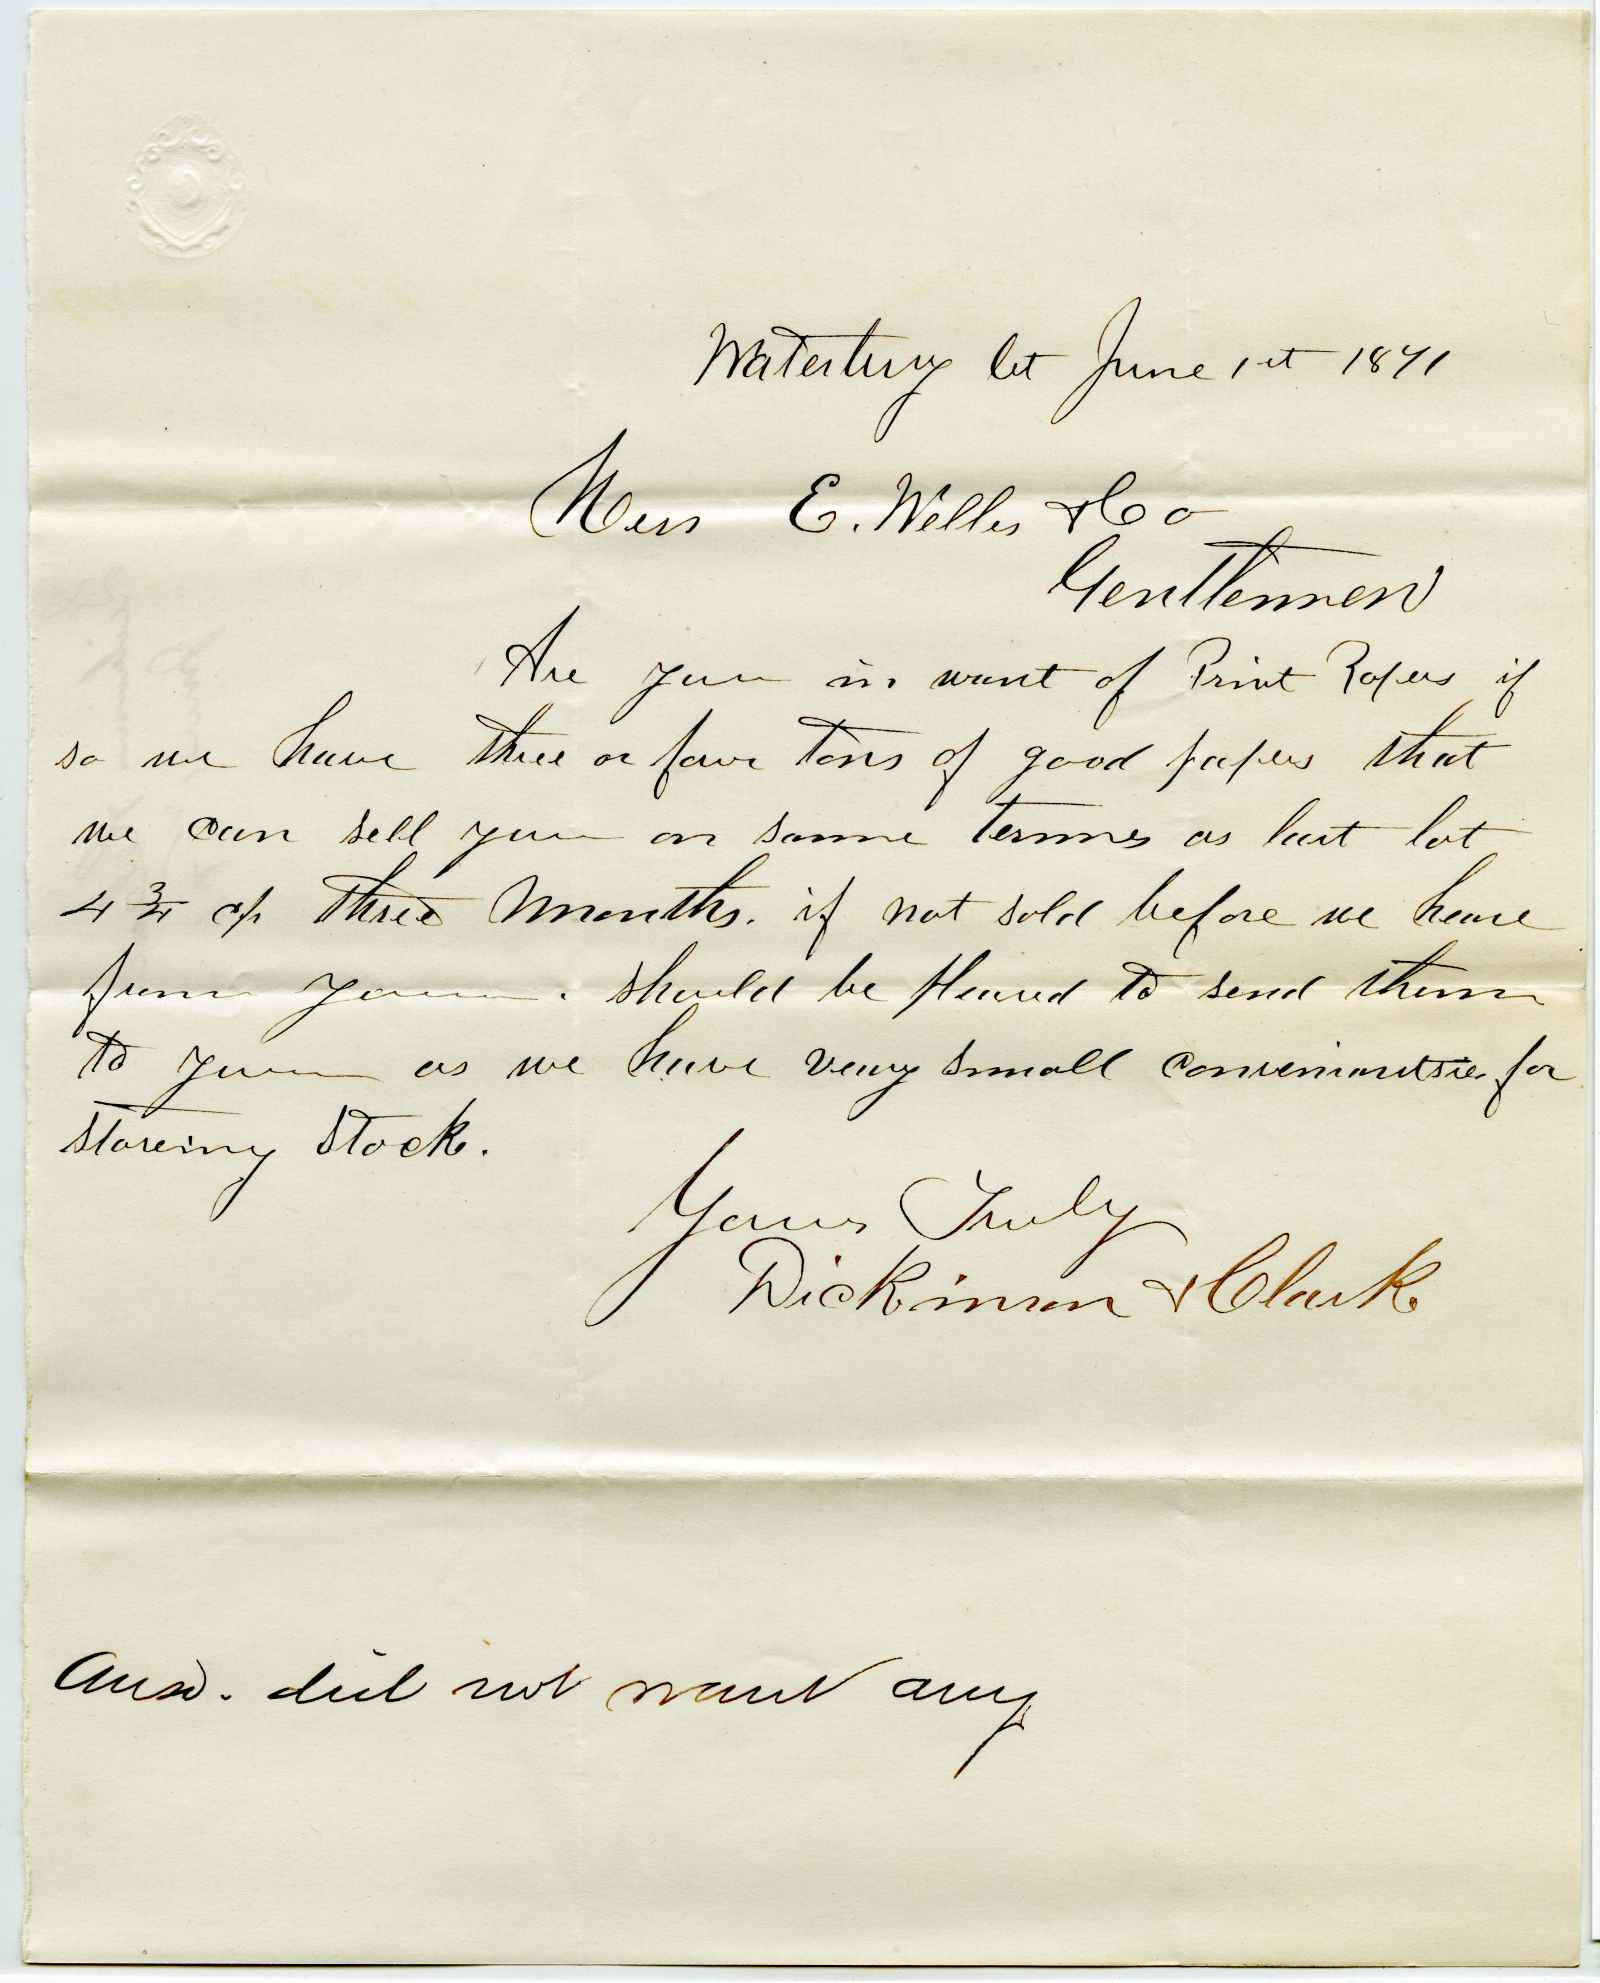 Waterbury Ct June 1st 1871
Mess E. Welles & Co
Gentlemen
Are you in want of Print Papers if
so we have three or four tons of good papers that
we can sell you on same terms as last lot
4 3/4 c/s three Months. if not sold before we heare
from you. should be pleased to send them
to you as we have very small conveniantsies for
storeing stock.
Yours Truly
Dickinson & Clark
Ansd. did not want any